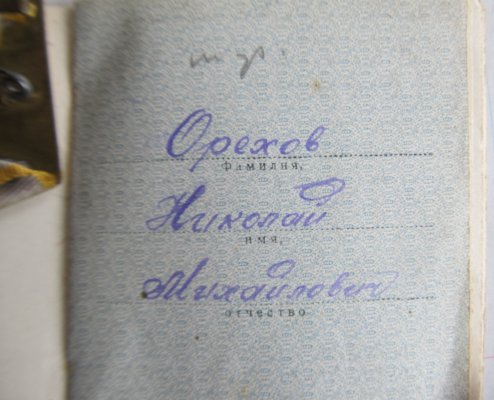 Орехов
фамилия,
Николай
имя,
Михайлович
отчество